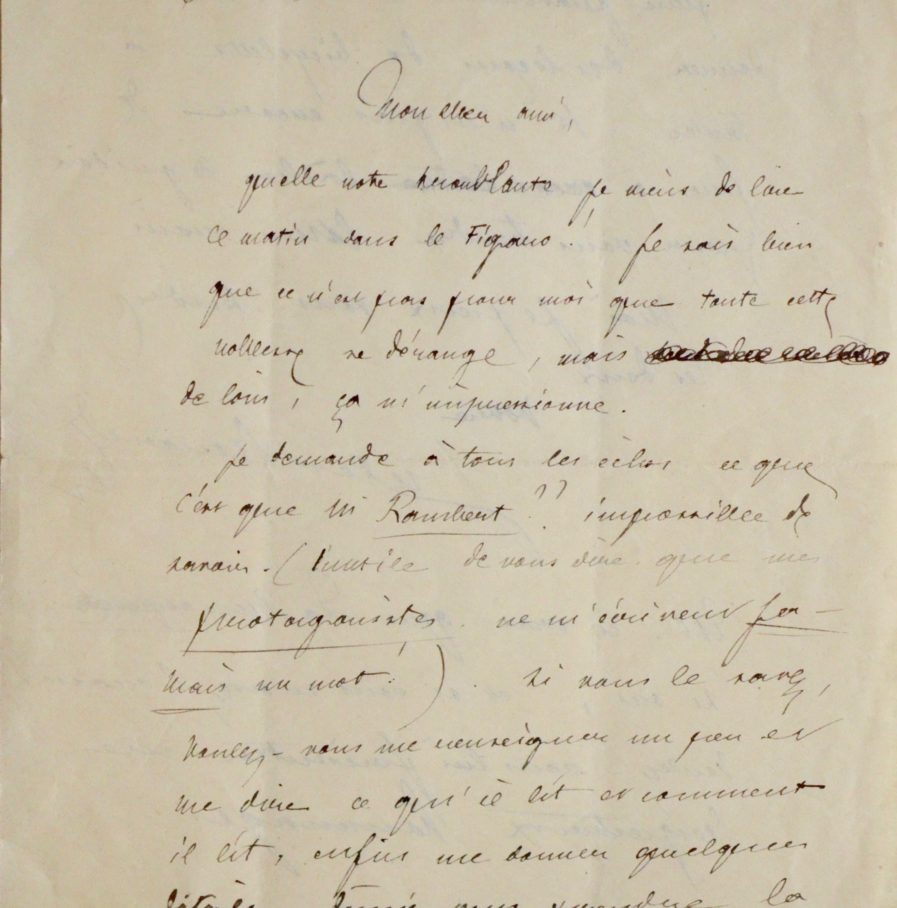 Mon cher ami,
quelle note troublante je viens de lire
ce matin dans le Figaro ! je sais bien
que ce n'est pas pour moi que toute cette
noblesse se dérange, mais
de loin, ça m'impressionne.
je demande à tous les échos ce que
c'est que M Rambert ?? impossible de
savoir. (Inutile de vous dire que mes
protagonistes ne m'écrivent ja-
mais un mot !). Si vous le savez,
voulez-vous me renseigner un peu et
me dire ce qu'il est et comment
il est, enfin me donner quelques
détails
la